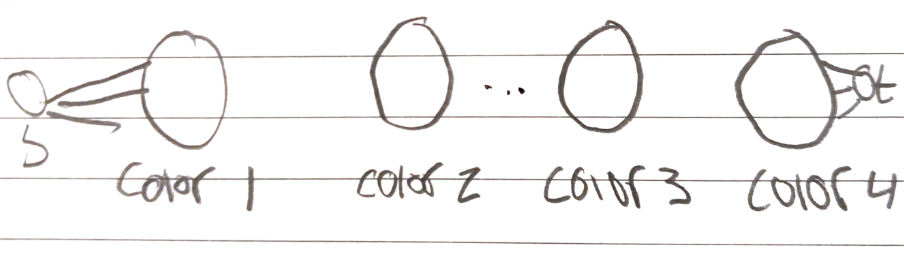 s t
...
color 1 color 2 color 3 color 4